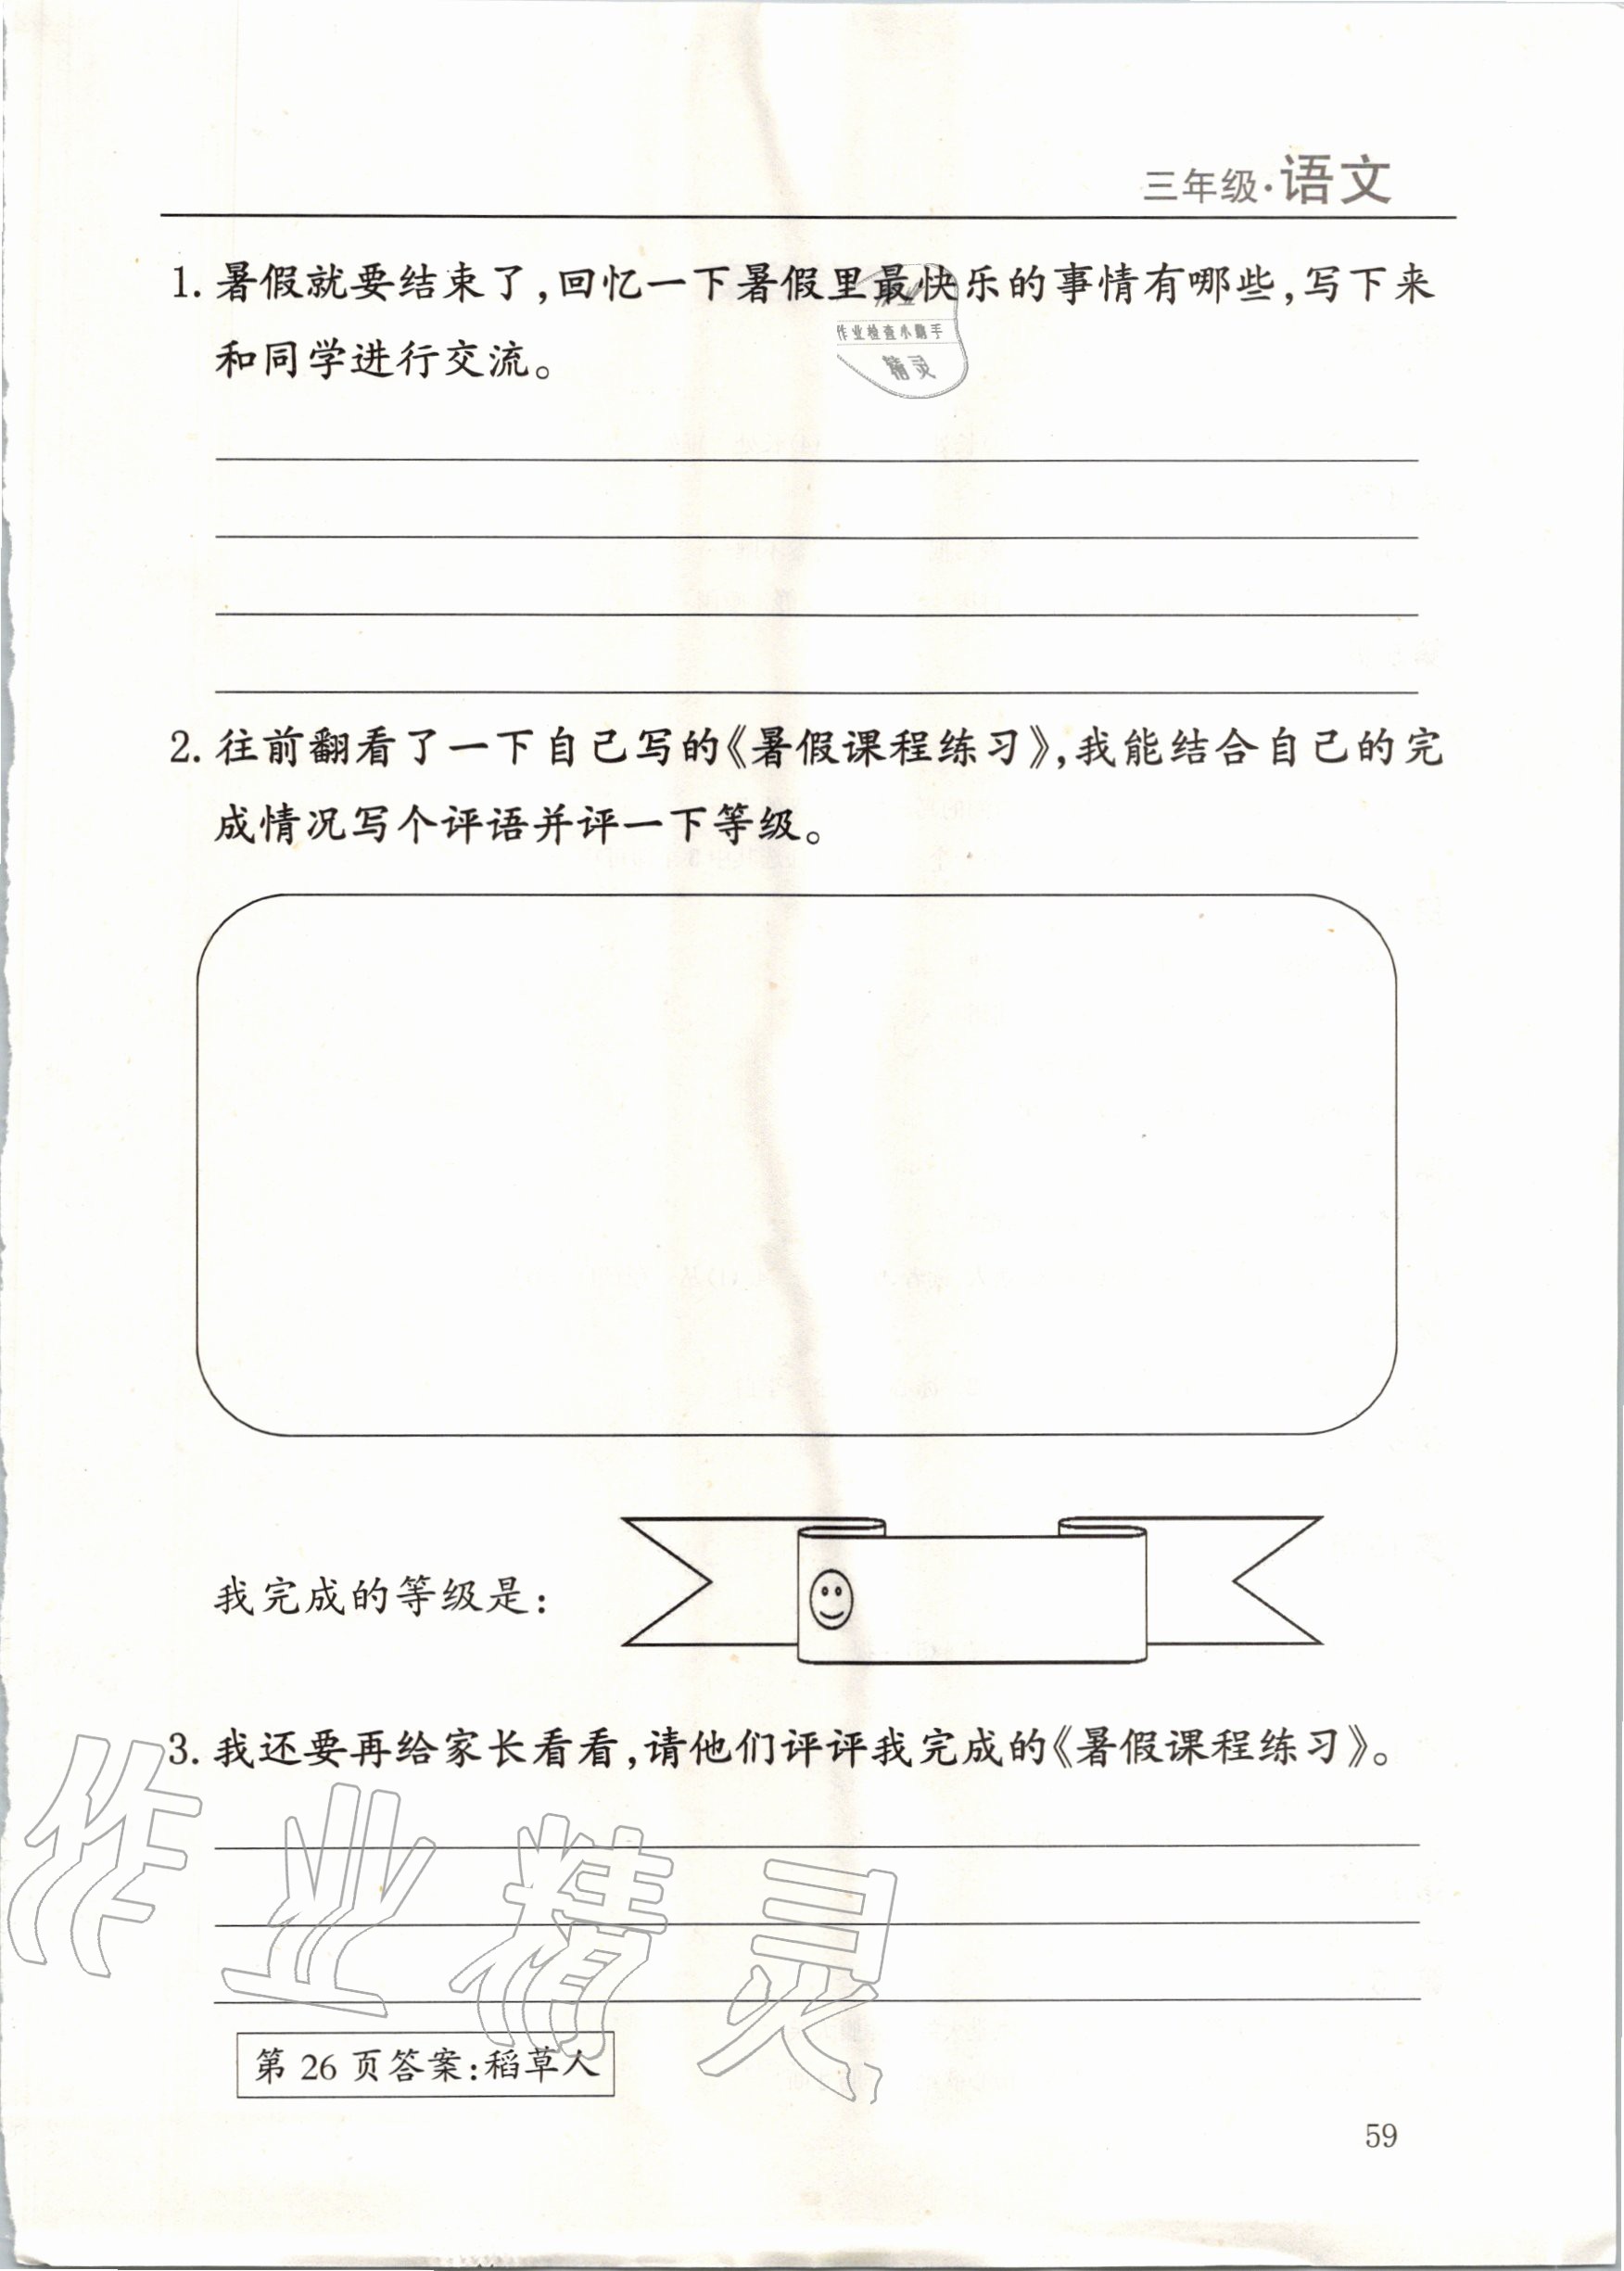 三年级·语文
1. 暑假就要结束了,回忆一下暑假里最快乐的事情有哪些,写下来
和同学进行交流。
作业
作业检查小帮手
精灵
2. 往前翻看了一下自己写的《暑假课程练习》,我能结合自己的完
成情况写个评语并评一下等级。
我完成的等级是:
3. 我还要再给家长看看,请他们评评我完成的《暑假课程练习》。
作业精灵
第 26 页答案:稻草人
59